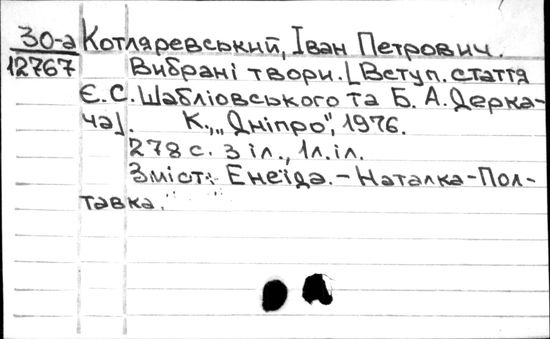 30-а Котляревський, Іван Петрович.
12767 Вибрані твори. [Вступ. стаття
Є. С. Шабліовського та Б. А. Дерка-
ча]. К., „Дніпро", 1976.
278 с. з іл., 1 л. іл.
Зміст: Енеїда. – Наталка-Пол-
тавка.